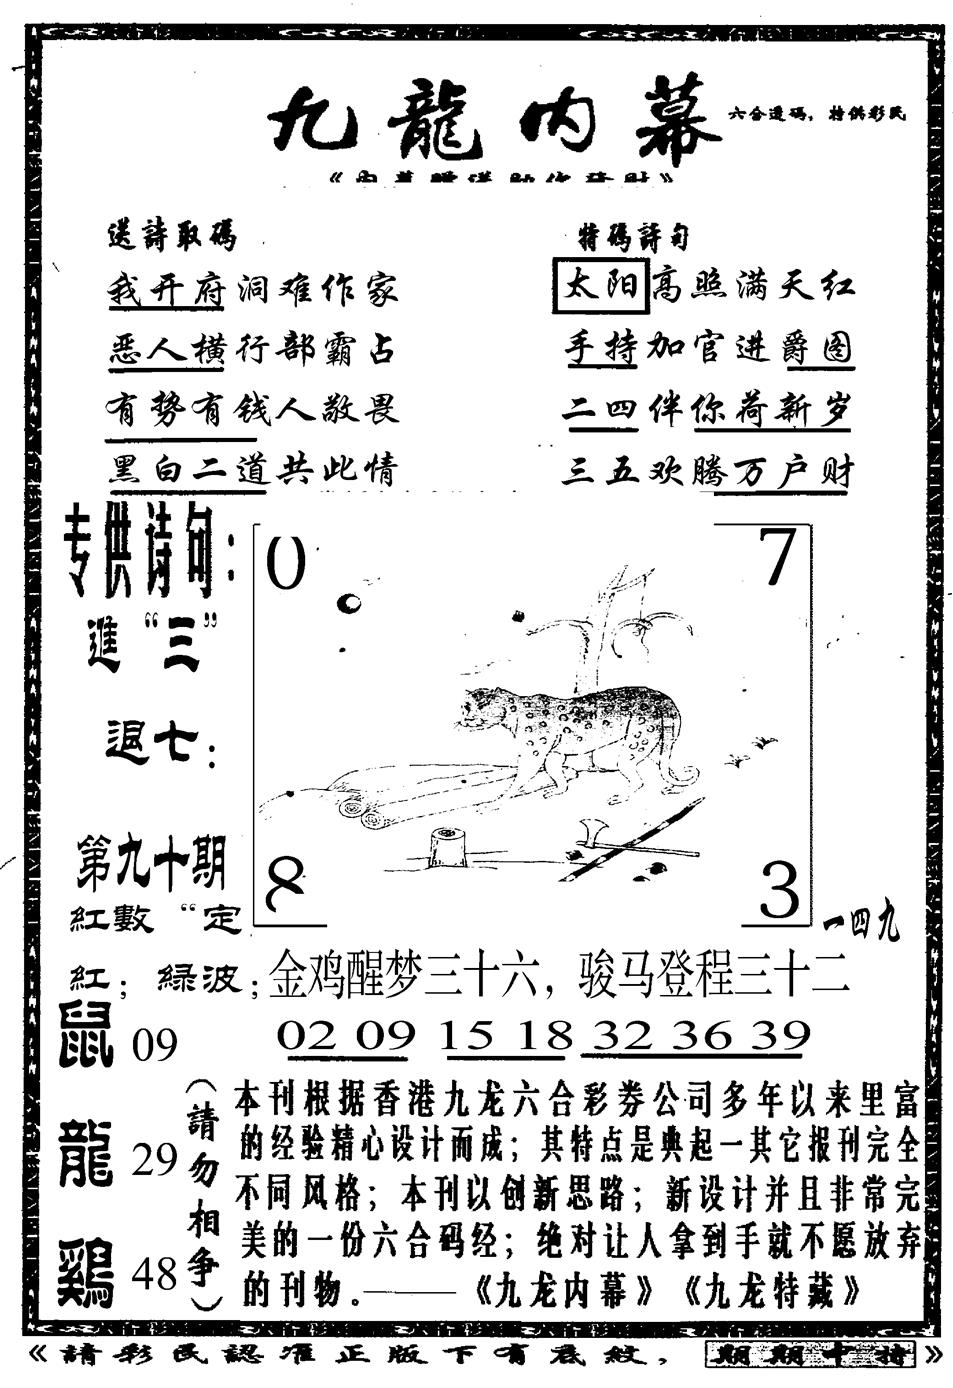 九龍内幕
六合透码，特供彩民
送詩取碼
我开府洞难作家
恶人横行部霸占
有势有钱人敬畏
黑白二道共此情
特碼詩句
太阳高照满天红
手持加官进爵图
二四伴你荷新岁
三五欢腾万户财
专供诗句：
進“三”
退七：
第九十期
紅數“定
紅；綠波；
0
7
8
3
一四九
金鸡醒梦三十六，骏马登程三十二
02 09 15 18 32 36 39
鼠 09
龍 29
鷄 48
（請勿相争）
本刊根据香港九龙六合彩券公司多年以来里富
的经验精心设计而成；其特点是典起一其它报刊完全
不同风格；本刊以创新思路；新设计并且非常完
美的一份六合码经；绝对让人拿到手就不愿放弃
的刊物。——《九龙内幕》《九龙特藏》
《請彩民認准正版下有底紋，期期中特》